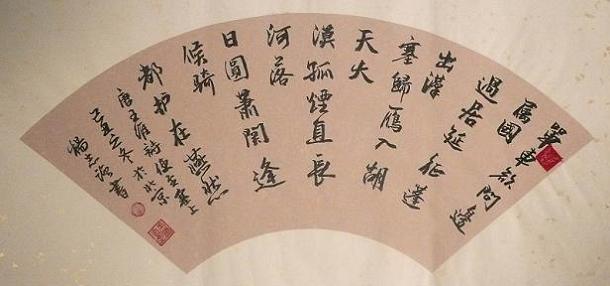 單車欲問邊
屬國
過居延征蓬
出漢
塞歸雁入胡
天大
漠孤煙直長
河落
日圓蕭關逢
候騎
都護在燕然
唐王維詩使至塞上
己丑之冬於北京
楊志書